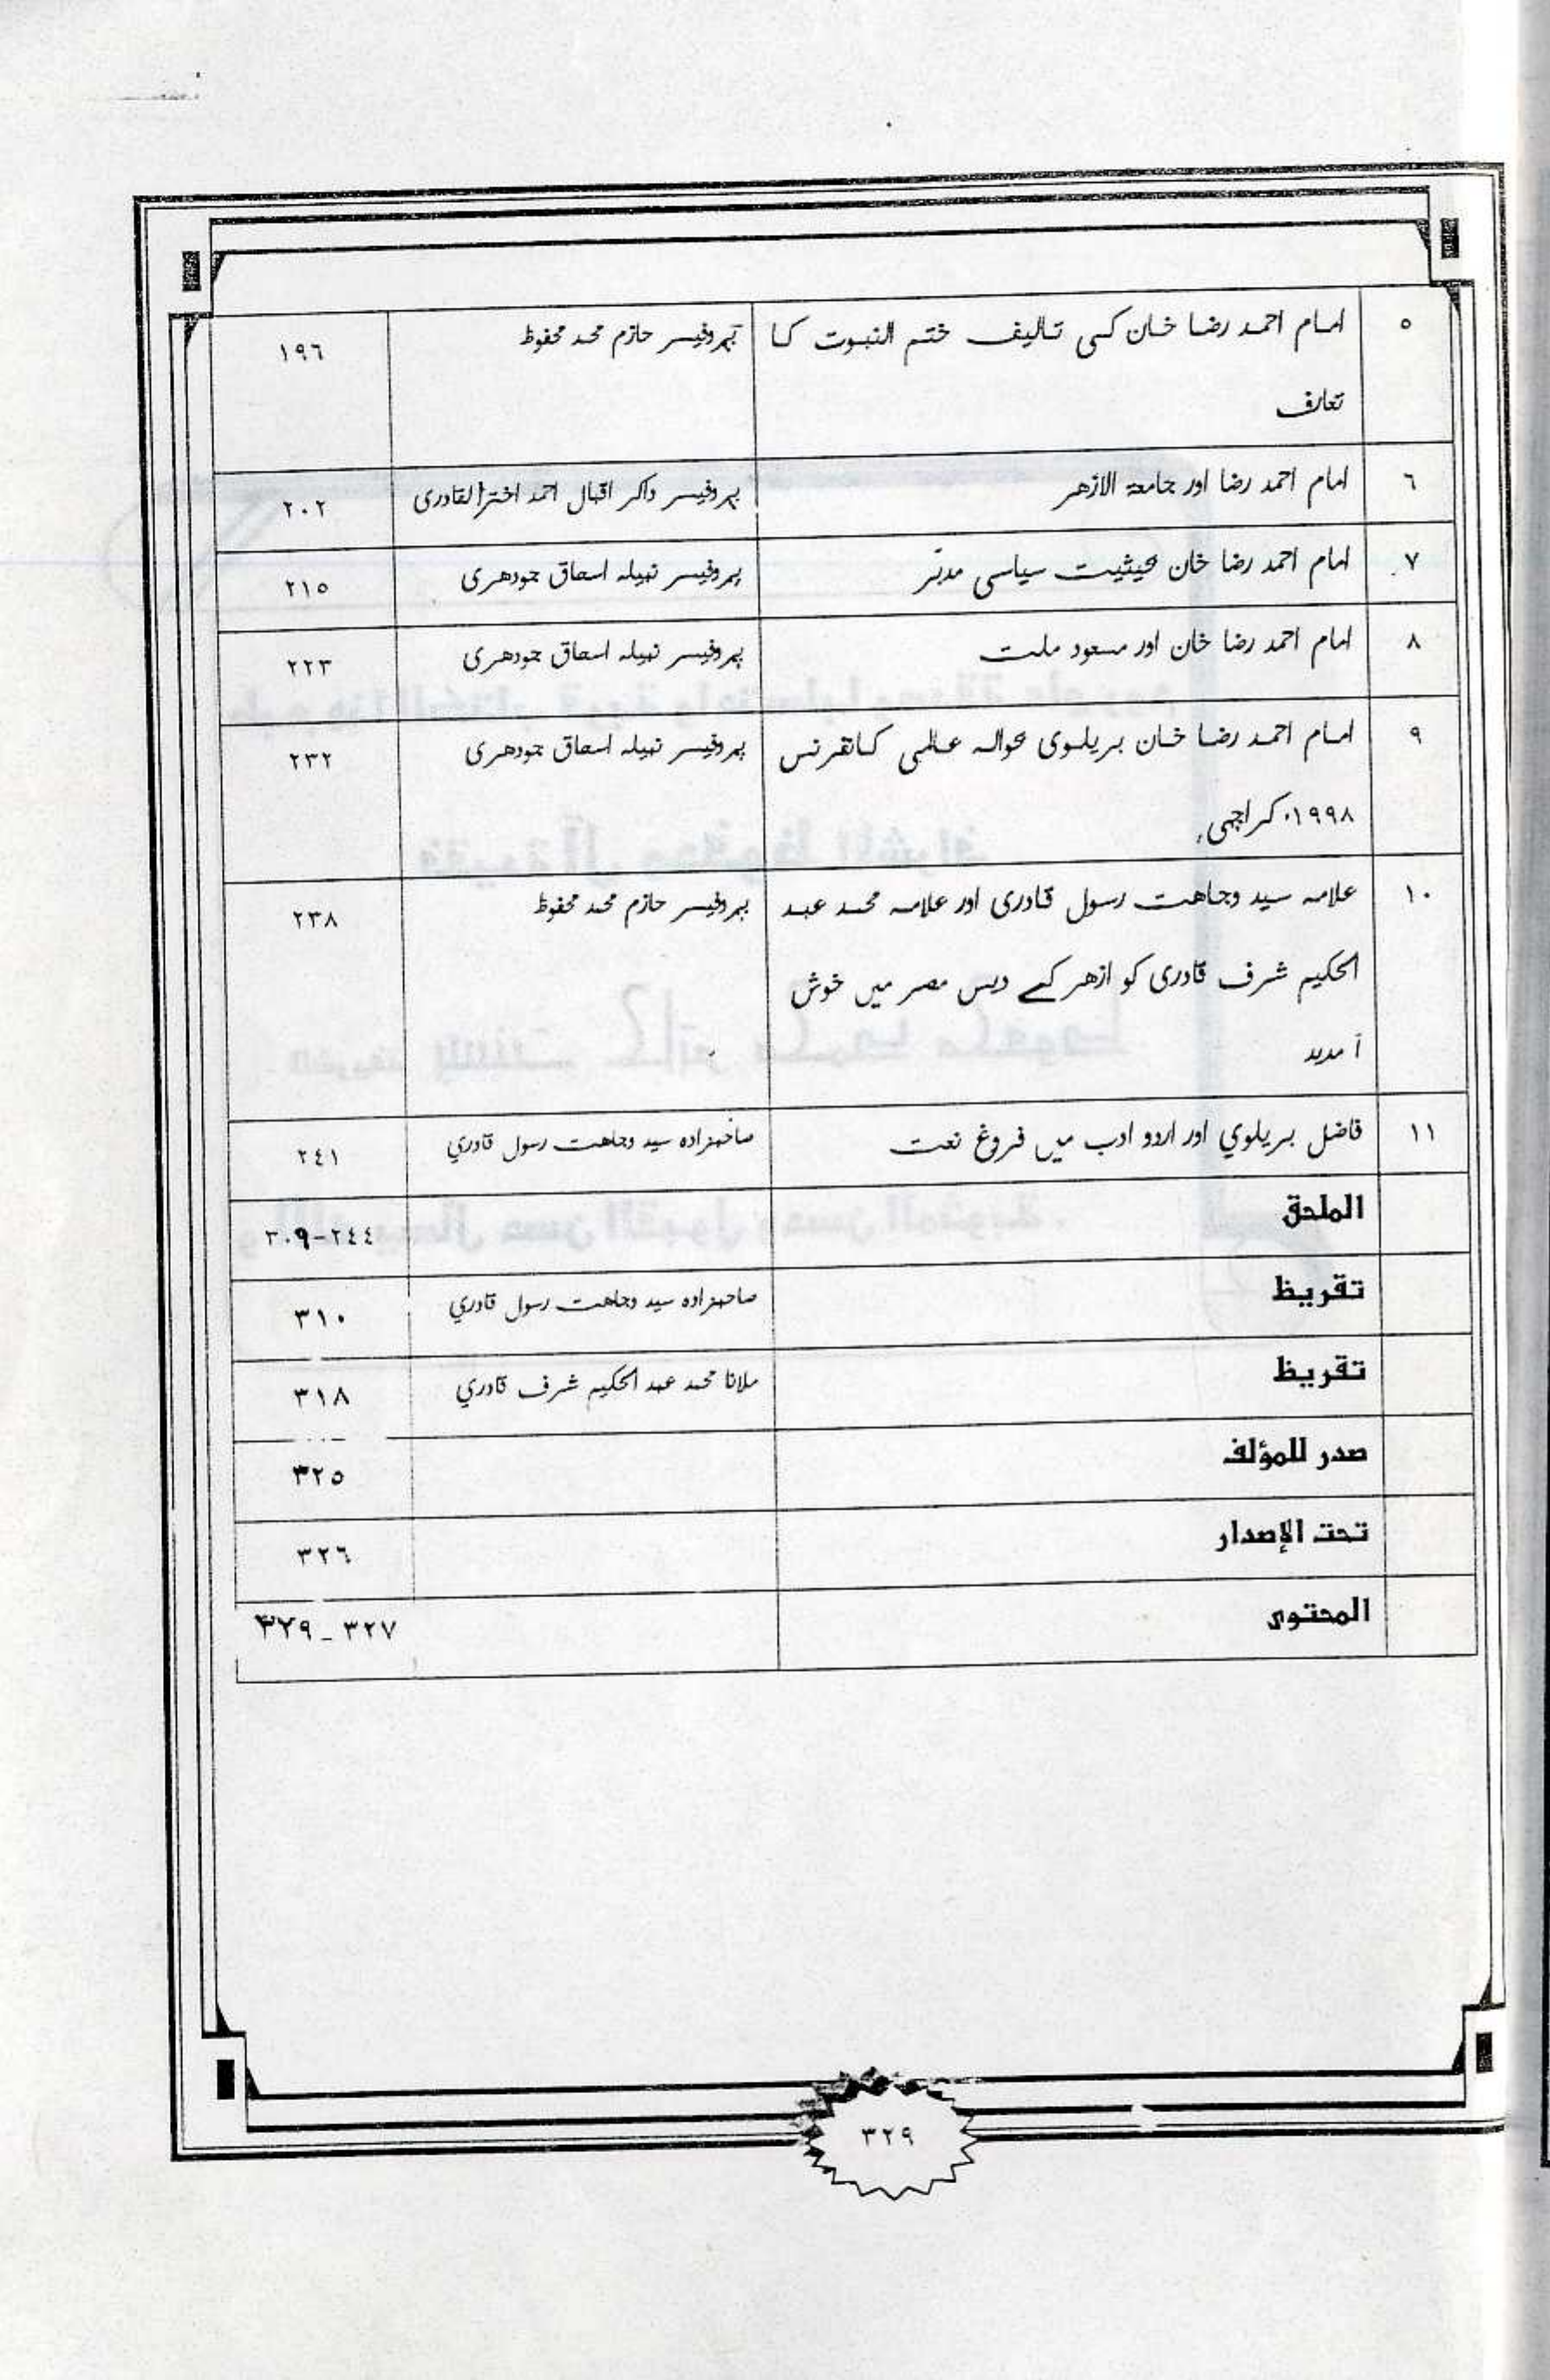 ٥ امام احمد رضا خان کی تالیف ختم النبوت کا پروفیسر حازم محمد محفوظ ١٩٦
تعارف
٦ امام احمد رضا اور جامعة الازهر پروفیسر داکر اقبال احمد اختر القادری ٢٠٢
٧ امام احمد رضا خان بحیثیت سیاسی مدبّر پروفیسر نبیله اسحاق چودهری ٢١٥
٨ امام احمد رضا خان اور مسعود ملت پروفیسر نبیله اسحاق چودهری ٢٢٣
٩ امام احمد رضا خان بریلوی بحواله عالمی کانفرنس پروفیسر نبیله اسحاق چودهری ٢٣٢
١٩٩٨ء کراچی
١٠ علامه سید وجاهت رسول قادری اور علامه محمد عبد پروفیسر حازم محمد محفوظ ٢٣٨
الحکیم شرف قادری کو ازهر کے دیس مصر میں خوش
آمدید
١١ فاضل بریلوي اور اردو ادب میں فروغ نعت صاحبزاده سید وجاهت رسول قادري ٢٤١
الملحق ٢٤٤-٣٠٩
تقريظ صاحبزاده سید وجاهت رسول قادري ٣١٠
تقريظ ملانا محمد عبد الحکیم شرف قادري ٣١٨
صدر للمؤلف ٣٢٥
تحت الإصدار ٣٢٦
المحتوى ٣٢٧ - ٣٢٩
٣٢٩